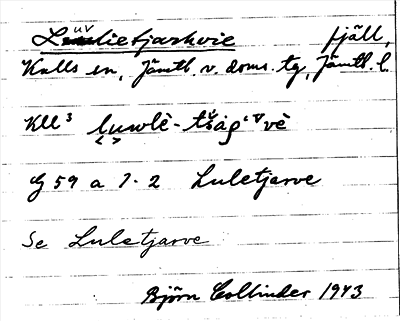 Luvlietjarhvie fjäll,
Kalls sn, Jämtl. v. doms. tg, Jämtl. l.
KU³
G 59 a 7-2 Luletjarve
Se Luletjarve
Björn Collinder 1943